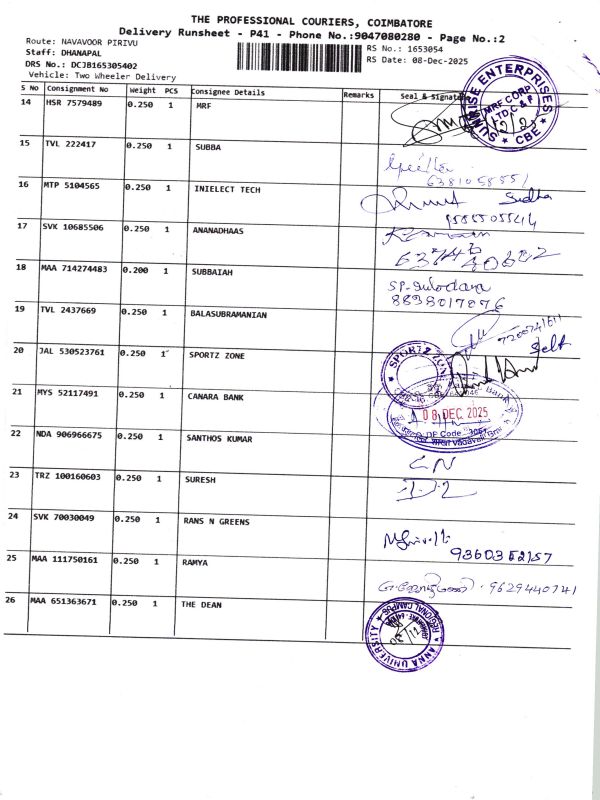 THE PROFESSIONAL COURIERS, COIMBATORE
Delivery Runsheet - P41 - Phone No.:9047080280 - Page No.:2
Route: NAVAVOOR PIRIVU
RS No.: 1653054
Staff: DHANAPAL
RS Date: 08-Dec-2025
DRS No.: DCJB165305402
Vehicle: Two Wheeler Delivery
S No Consignment No Weight PCS Consignee Details Remarks Seal & Signature
14 HSR 7579489 0.250 1 MRF
SUNRISE ENTERPRISES
MRF CORP
LTD,C & F
CBE
15 TVL 222417 0.250 1 SUBBA
16 MTP 5104565 0.250 1 INIELECT TECH
Sudha
17 SVK 10685506 0.250 1 ANANADHAAS
18 MAA 714274483 0.200 1 SUBBAIAH
8838017076
19 TVL 2437669 0.250 1 BALASUBRAMANIAN
Self
20 JAL 530523761 0.250 1 SPORTZ ZONE
SPORTZ ZONE
21 MYS 52117491 0.250 1 CANARA BANK
Bank
08 DEC 2025
DP Code
22 NDA 906966675 0.250 1 SANTHOS KUMAR
23 TRZ 100160603 0.250 1 SURESH
24 SVK 70030049 0.250 1 RANS N GREENS
9360352157
25 MAA 111750161 0.250 1 RAMYA
9629440741
26 MAA 651363671 0.250 1 THE DEAN
REGIONAL CAMPUS
ANNA UNIVERSITY